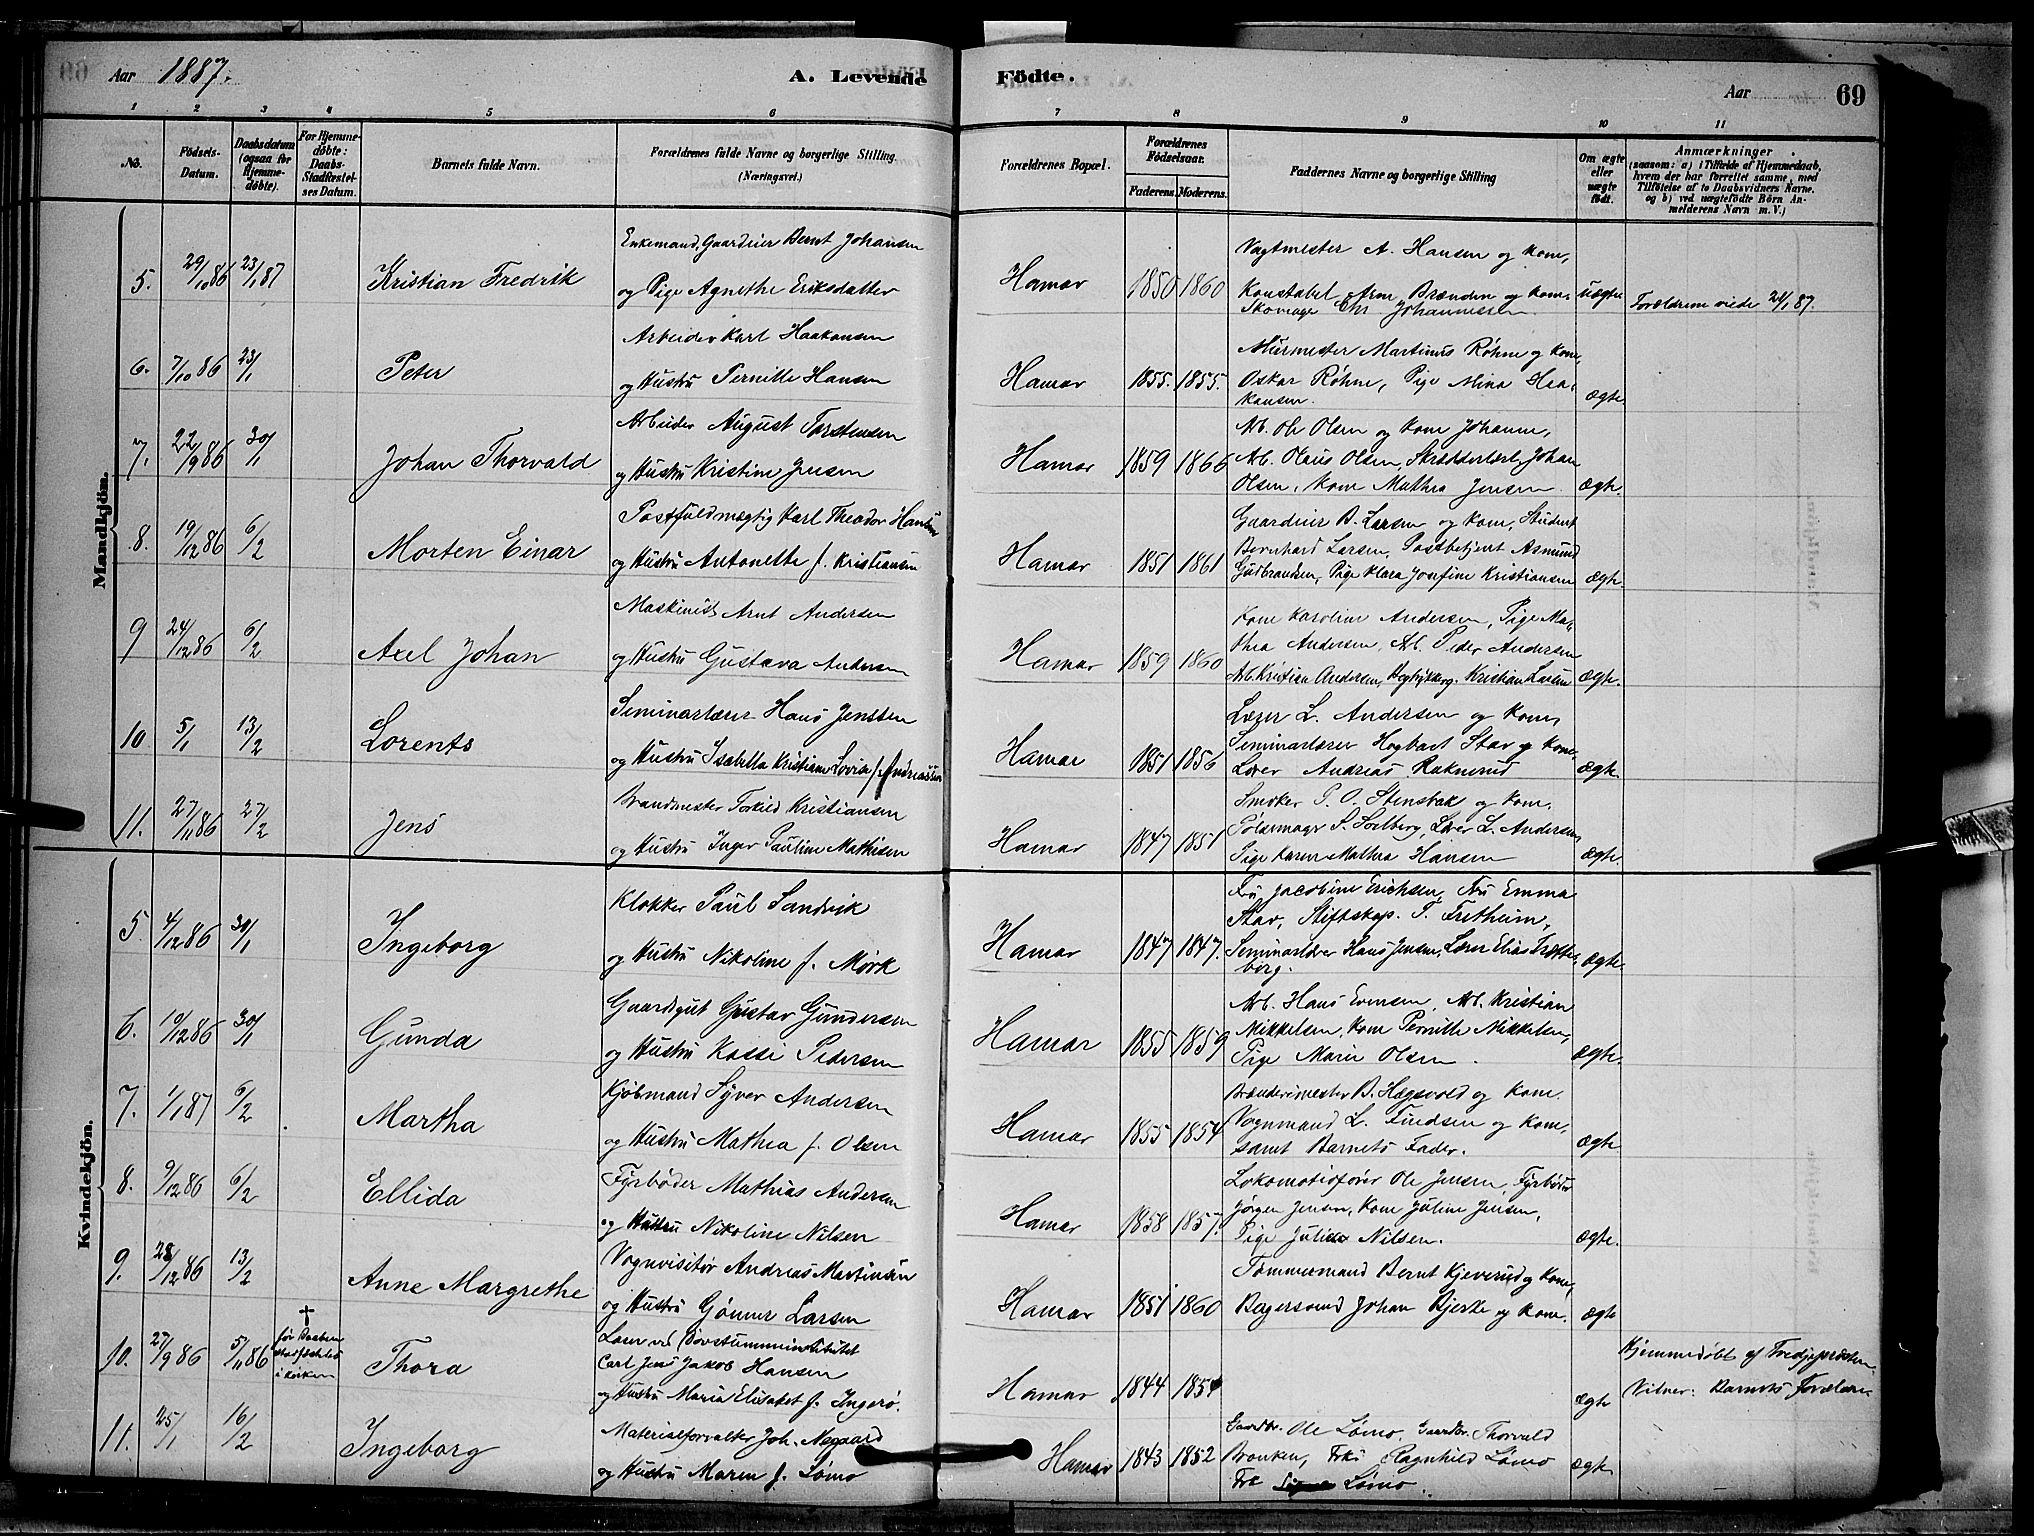 Aar 1887. A. Levende Födte. Aar 69
1 2 3 4 5 6 7 8 9 10 11
No. Födsels-Datum. Daabsdatum (ogsaa for Hjemmedöbte). For Hjemmedöbte: Daabs-Stadfæstelses Datum. Barnets fulde Navn. Forældrenes fulde Navne og borgerlige Stilling. (Næringsvei.) Forældrenes Bopæl. Forældrenes Födselsaar. Faderens. Moderens. Faddernes Navne og borgerlige Stilling Om ægte eller uægte födt. Anmærkninger. (saasom: a) i Tilfælde af Hjemmedaab, hvem der har forrettet samme, med Tilföielse af to Daabsvidners Navne. og b) ved uægtefödte Börn Anmelderens Navn m. V.)
Mandkjön.
5. 29/10 86 23/1 87 Kristian Fredrik
Enkemand, Gaardeier Bernt Johansen
og Pige Agnethe Eriksdatter
Hamar 1850 1860
Vagtmester A. Hansen og Kone,
Konstabel Arne Brænden og Kone
Skomager Chr Johannessen
uægte Forældrene viede 28/1 87.
6. 7/10 86 23/1 Peter
Arbeider Karl Haakonsen
og Hustru Pernille Hansen
Hamar 1855. 1855.
Murmester Martinus Röhne og Kone,
Oskar Röhne, Pige Mina Haa-
konsen.
ægte
7. 22/9 86 30/1 Johan Thorvald
Arbeider August Torstensen
og Hustru Kristine Jensen
Hamar 1859 1866
Arb. Ole Olsen og Kone Johanne,
Arb. Olaus Olsen, Skrædderlærl. Johan
Olsen, Kone Mathea Jensen
ægte.
8. 19/12 86 6/2 Morten Einar
Postfuldmægtig Karl Theodor Hansen
og Hustru Antonette f. Kristiansen
Hamar 1851 1861
Gaardeier B. Larsen og Kone, Student
Bernhard Larsen, Postbetjent Asmund
Gudbrandsen, Pige Klara Josefine Kristiansen
ægte
9 24/12 86 6/2 Axel Johan
Maskinist Arnt Andersen
og Hustru Gustava Andersen
Hamar 1859 1860
Kone Karoline Andersen, Pige Ma-
thea Andersen, Arb. Peder Andersen
Arb. Kristian Andersen, Kristian Larsen
ægte.
10 5/1 13/2 Lorents
Seminarlærer Hans Jensen
og Hustru Isabella Kristiane Lovise f. Andreassen
Hamar 1851 1856
Lærer L. Andersen og Kone,
Seminarlærer Hagbart Stav og Kone,
Lærer Andreas Raknerud
ægte.
11. 27/11 86 27/2 Jens
Brandmester Torkild Kristiansen
og Hustru Inger Pauline Mathisen
Hamar 1847 1851
Smöker P. O. Stensbak og Kone,
Pölsemager S. Solberg, Lærer L. Andersen,
Pige Karen Mathea Hansen
ægte.
Kvindekjön.
5. 4/12 86 30/1 Ingeborg
Klokker Paul Sandvik
og Hustru Nikoline f. Mörk
Hamar 1847 1847.
Fru Jacobine Erichsen, Fru Emma
Stav, Stiftskap. P. Fretheim,
Seminarlærer Hans Jensen, Lærer Elias Trætte-
berg.
ægte.
6. 10/12 86 30/1 Gunda
Gaardsgut Gustav Gundersen
og Hustru Kossi Pedersen
Hamar 1855 1859
Arb. Hans Evensen, Arb. Kristian
Mikkelsen, Kone Pernille Mikkelsen,
Pige Marie Olsen.
ægte.
7. 1/1 87 6/2 Martha
Kjöbmand Syver Andersen
og Hustru Mathea f. Olsen
Hamar 1855 1854
Brænderimester B. Hægsvold og Kone.
Vognmand L. Findsen og Kone,
samt Barnets Fader.
ægte
8. 9/12 86 6/2 Ellida
Fyrböder Mathias Andersen
og Hustru Nikoline Nilsen
Hamar 1858 1857.
Lokomotivförer Ole Jensen, Fyrböder
Jörgen Jensen, Kone Juline Jensen,
Pige Juline Nilsen.
ægte.
9. 28/12 86 13/2 Anne Margrethe
Vognvisitör Andreas Martinsen
og Hustru Gönner Larsen
Hamar 1851 1860
Tömmermand Bernt Kjeverud og Kone,
Bagersvend Johan Bjerke og Kone.
ægte
10. 27/9 86 5/11 86 † för Daaben stadfæstedes i Kirken Thora
Lærer ved Dövstummeinstitutet
Carl Jens Jakob Hansen
og Hustru Maria Elisabet f. Ingerö.
Hamar 1844 1854
ægte
Hjemmedöbt af Tredjepræsten
Vitner: Barnets Forældre
11. 25/1 16/2 Ingeborg
Materialforvalter Joh. Nøgaard
og Hustru Maren f. Lömo
Hamar 1843 1852
Gaardbr. Ole Lömo, Gaardbr. Thorvald
Bronken, Frk Ragnhild Lömo
Frk Signe Lömo.
ægte